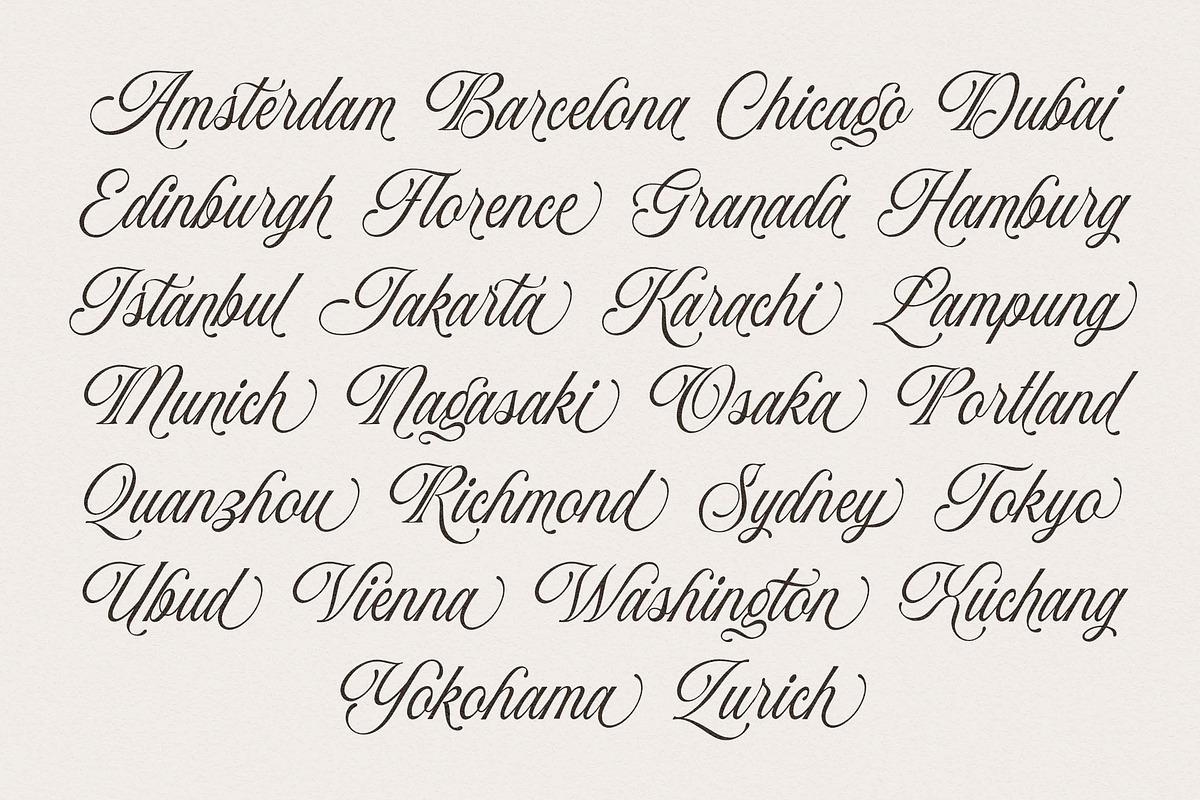 Amsterdam Barcelona Chicago Dubai
Edinburgh Florence Granada Hamburg
Istanbul Jakarta Karachi Lampung
Munich Nagasaki Osaka Portland
Quanzhou Richmond Sydney Tokyo
Ubud Vienna Washington Xuchang
Yokohama Zurich